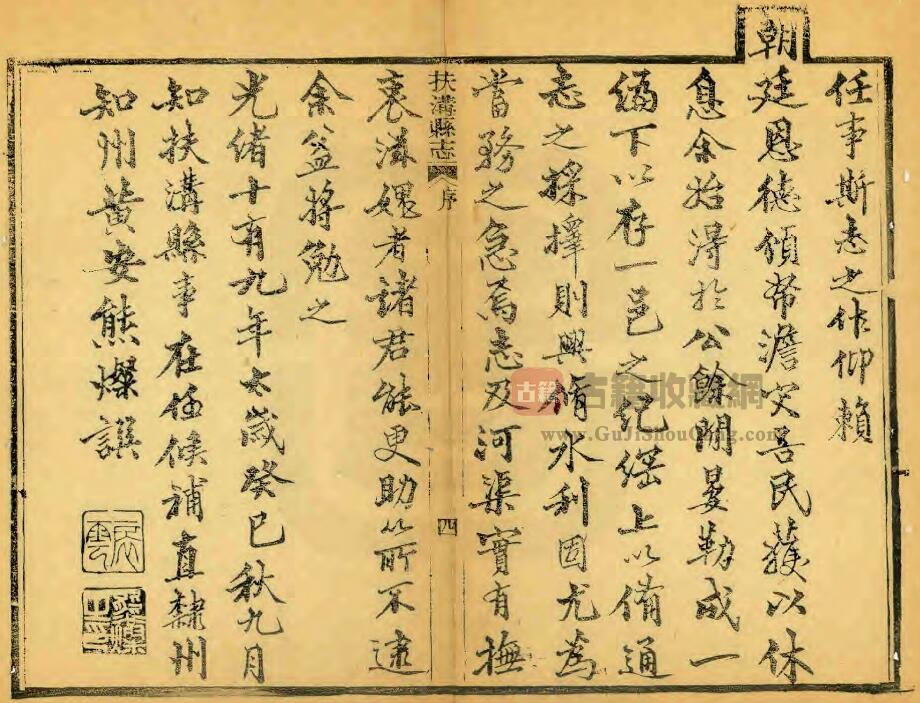 任事斯志之作仰賴
朝廷恩德頒帑澹災吾民獲以休
息余始得於公餘閒晏勒成一
編下以存一邑之紀綱上以備通
志之採擇則興脩水利固尤為
當務之急焉志及河渠實有撫
衷滋媿者諸君能更助以所不逮
余益將勉之
光緒十有九年太歲癸巳秋九月
知扶溝縣事在任候補直隸州
知州黃安熊燦譔
扶溝縣志
序
四
古籍
古籍收藏網
www.GuJiShouCang.com